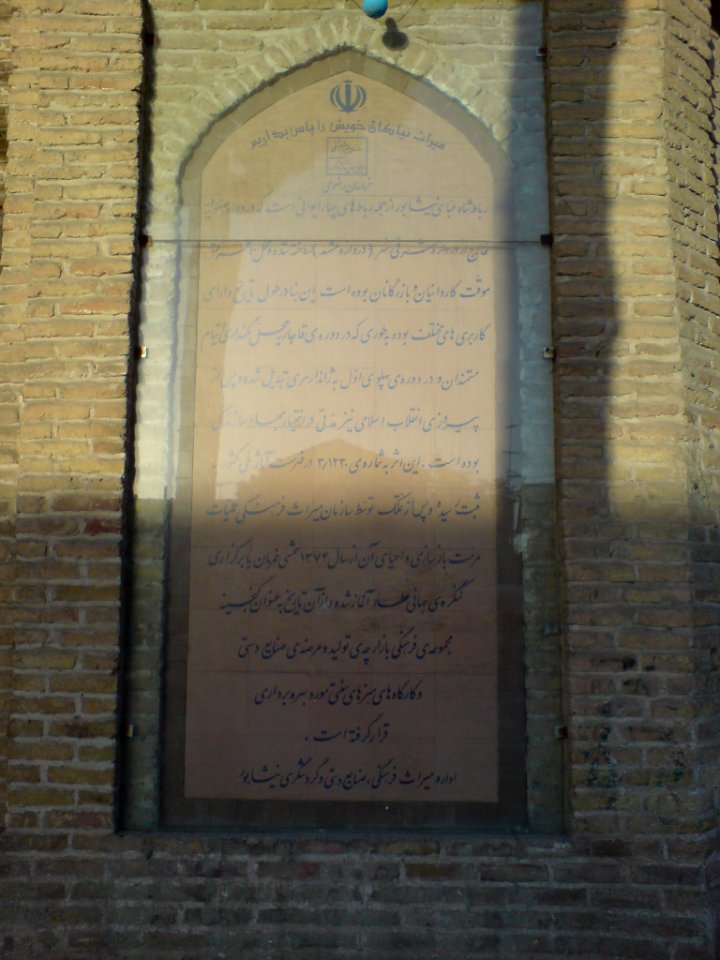 میراث نیاکان خویش را پاس بداریم
خراسان رضوی
رباط شاه عباسی نیشابور از جمله رباط های چهار ایوانی است که در دوره صفویه
خارج از دروازه شرقی شهر (دروازه مشهد) ساخته شده و محل
موقت کاروانیان و بازرگانان بوده است این بنا در طول تاریخ دارای
کاربری های مختلف بوده به طوری که در دوره ی قاجاریه محل نگهداری ایتام
مستمندان و در دوره ی پهلوی اول به ژاندارمری تبدیل شده و پس از
پیروزی انقلاب اسلامی نیز مدتی در اختیار جهاد سازندگی
بوده است . این اثر به شماره ی ۳/۱۲۳۰ در فهرست آثار ملی کشور به
ثبت رسیده و پس از تملک توسط سازمان میراث فرهنگی عملیات
مرمت بازسازی و احیای آن از سال ۱۳۷۴ شمسی همزمان با برگزاری
کنگره ی جهانی عطار آغاز شده و از آن تاریخ به عنوان گنجینه
مجموعه ی فرهنگی بازارچه ی تولید و عرضه ی صنایع دستی
و کارگاه های هنرهای سنتی مورد بهره برداری
قرار گرفته است .
اداره میراث فرهنگی، صنایع دستی و گردشگری نیشابور